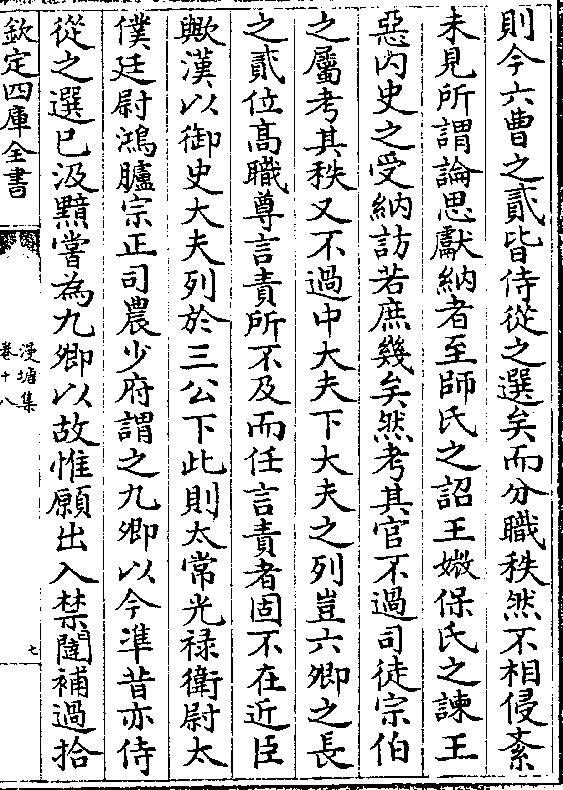 則今六曹之貳皆侍從之選矣而分職秩然不相侵紊
未見所謂論思獻納者至師氏之詔王媺保氏之諫王
惡内史之受納訪若庶幾矣然考其官不過司徒宗伯
之屬考其秩又不過中大夫下大夫之列豈六卿之長
之貳位髙職尊言責所不及而任言責者固不在近臣
歟漢以御史大夫列於三公下此則太常光禄衛尉太
僕廷尉鴻臚宗正司農少府謂之九卿以今準昔亦侍
從之選已汲黯嘗為九卿以故惟願出入禁闥補過拾
欽定四庫全書
漫塘集
卷十八
七